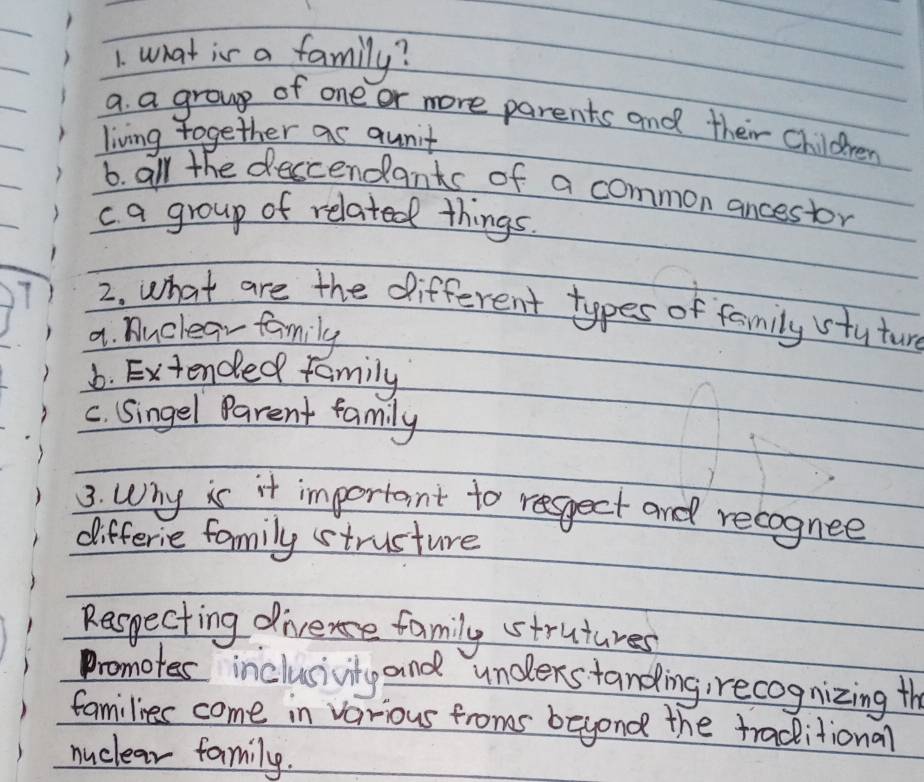 1. What is a family?
a. a group of one or more parents and their children
living together as aunit
b. all the descendants of a common ancestor
c. a group of related things.
2. What are the different types of family styture
a. Nuclear family
b. Extended family
c. Singel Parent family
3. Why is it important to respect and recognee
differie family strusture
Respecting diverse family strutures
Promotes inclusivity and understanding, recognizing th
families come in various froms beyond the traditional
nuclear family.